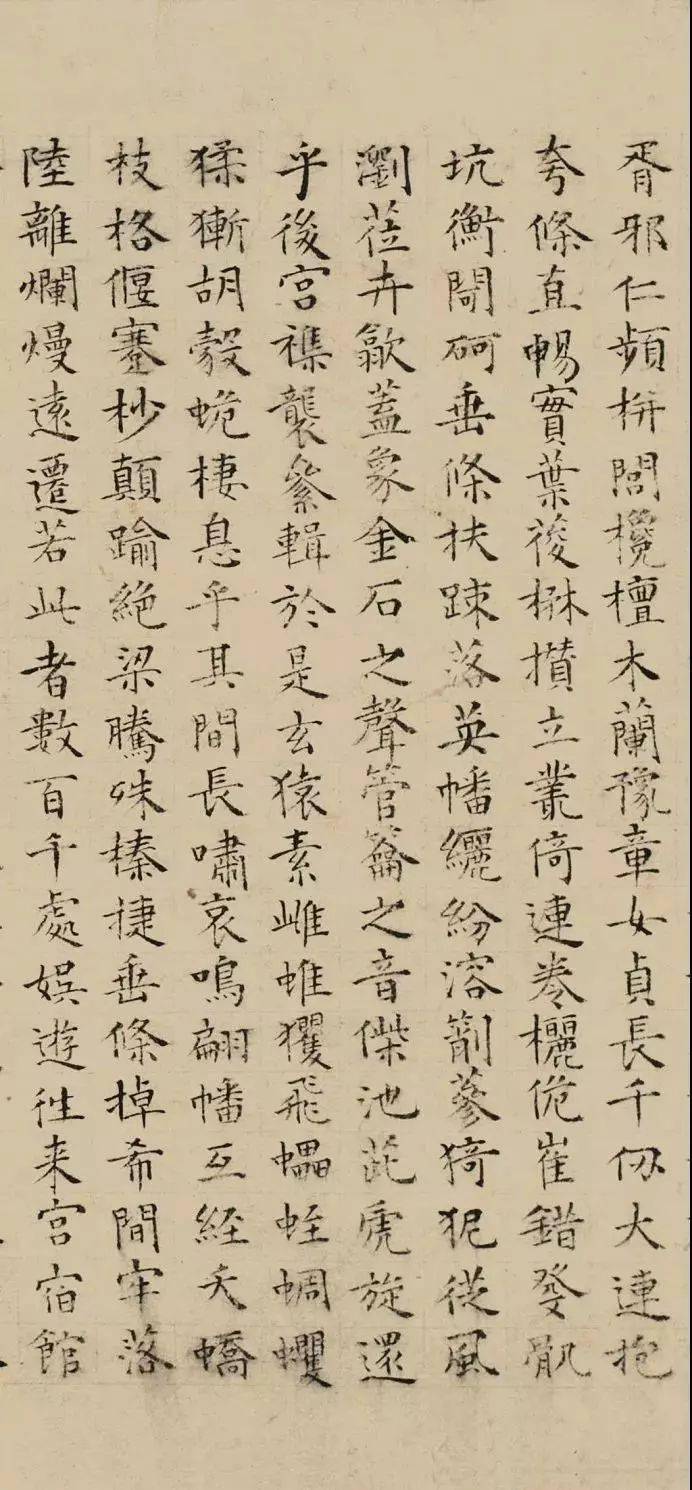 胥邪仁頻栟閭欃檀木蘭豫章女貞長千仞大連抱
夸條直暢實葉葰楙攢立叢倚連卷欐佹崔錯癹骫
坑衡閜砢垂條扶踈落英幡纚紛溶萷蔘猗狔從風
瀏莅卉歙蓋象金石之聲管籥之音傑池茈虒旋還
乎後宮襍襲絫輯於是玄猿素雌蜼玃飛蠝蛭蜩蠼
猱獑胡豰蛫棲息乎其間長嘯哀鳴翩幡互經夭蟜
枝格偃蹇杪顛踰絕梁騰殊榛捷垂條掉希間牢落
陸離爛熳遠遷若此者數百千處娛遊往来宮宿館